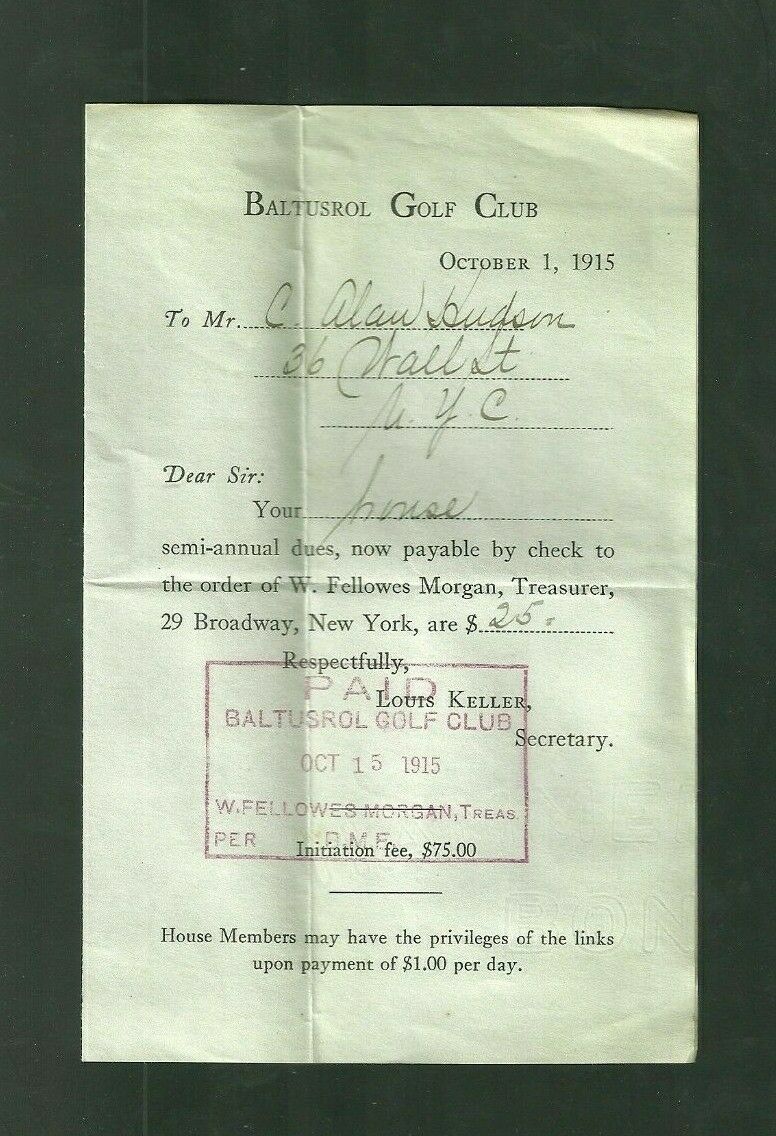 BALTUSROL GOLF CLUB
OCTOBER 1, 1915
To Mr. C. Alan Hudson
36 Wall St
N. Y. C.
Dear Sir:
Your house
semi-annual dues, now payable by check to
the order of W. Fellowes Morgan, Treasurer,
29 Broadway, New York, are $ 25.
Respectfully,
PAID
LOUIS KELLER,
BALTUSROL GOLF CLUB
Secretary.
OCT 15 1915
W. FELLOWES MORGAN, TREAS.
PER
Initiation fee, $75.00
House Members may have the privileges of the links
upon payment of $1.00 per day.